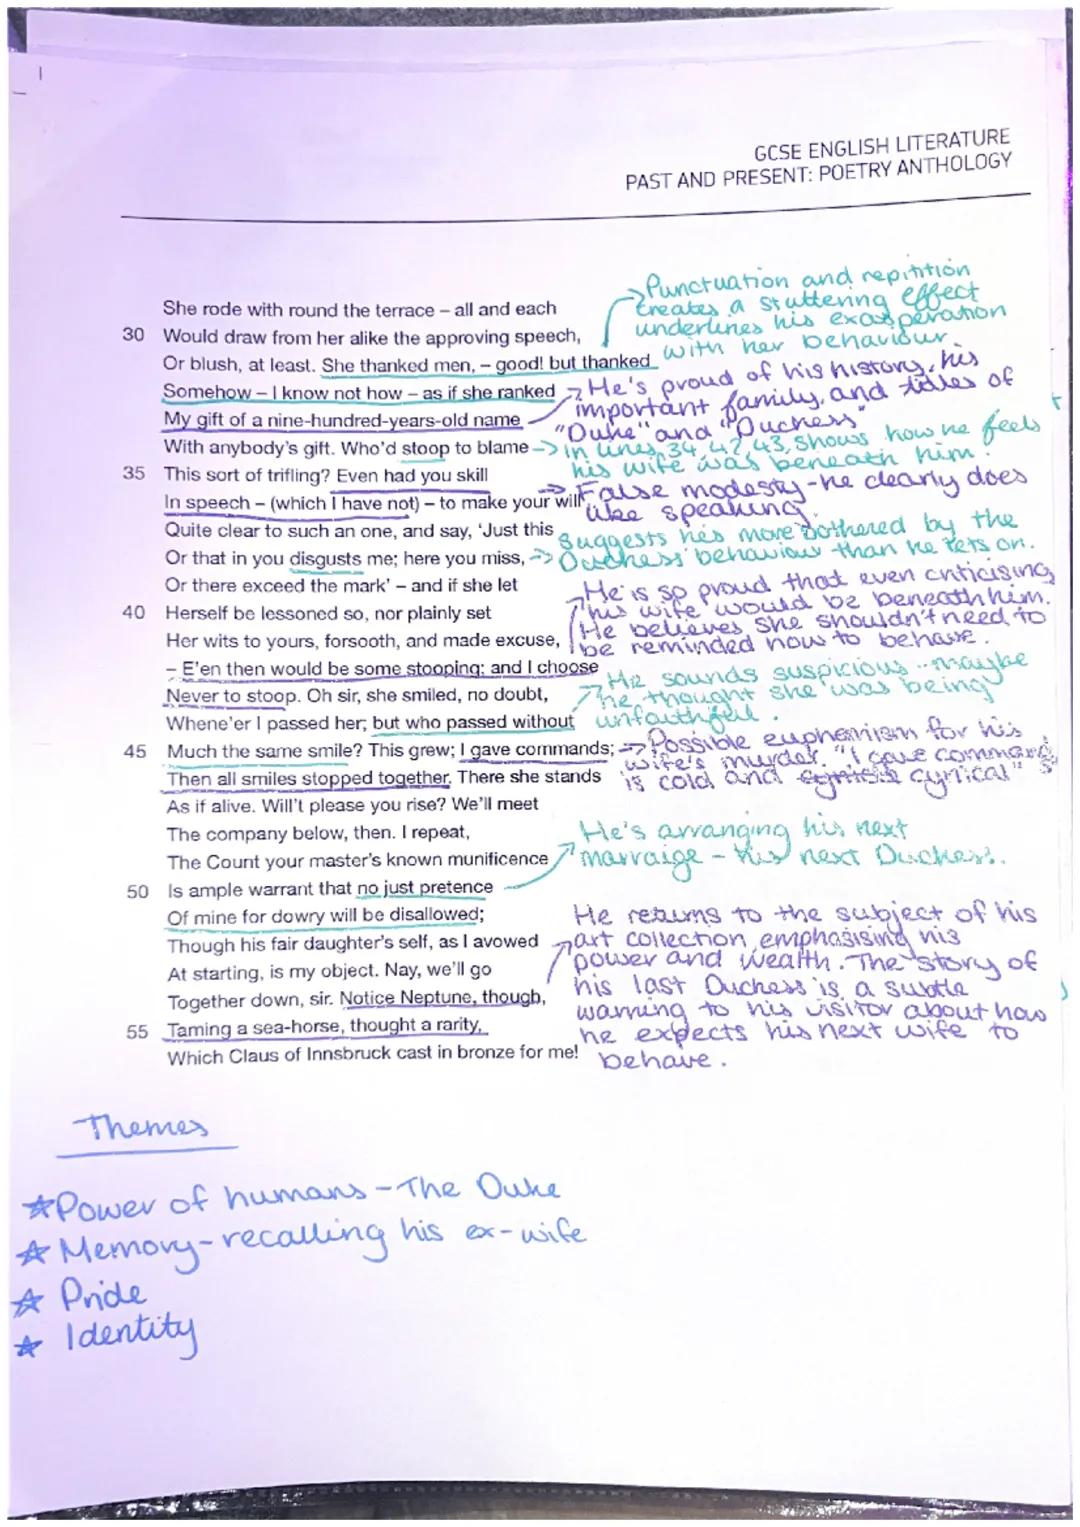 GCSE ENGLISH LITERATURE
PAST AND PRESENT: POETRY ANTHOLOGY
She rode with round the terrace – all and each
30 Would draw from her alike the approving speech,
Or blush, at least. She thanked men, – good! but thanked
Somehow – I know not how – as if she ranked
My gift of a nine-hundred-years-old name
With anybody's gift. Who'd stoop to blame
35 This sort of trifling? Even had you skill
In speech – (which I have not) – to make your will
Quite clear to such an one, and say, 'Just this
Or that in you disgusts me; here you miss,
Or there exceed the mark' – and if she let
40 Herself be lessoned so, nor plainly set
Her wits to yours, forsooth, and made excuse,
– E'en then would be some stooping; and I choose
Never to stoop. Oh sir, she smiled, no doubt,
Whene'er I passed her; but who passed without
45 Much the same smile? This grew; I gave commands;
Then all smiles stopped together. There she stands
As if alive. Will't please you rise? We'll meet
The company below, then. I repeat,
The Count your master's known munificence
50 Is ample warrant that no just pretence
Of mine for dowry will be disallowed;
Though his fair daughter's self, as I avowed
At starting, is my object. Nay, we'll go
Together down, sir. Notice Neptune, though,
55 Taming a sea-horse, thought a rarity,
Which Claus of Innsbruck cast in bronze for me!
Punctuation and repitition
creates a stuttering effect
underlines his exasperation
with her behaviour.
He's proud of his history, his
important family, and titles of
"Duke" and "Duchess"
in lines 34, 42, 43, shows how he feels
his wife was beneath him.
False modesty - he clearly does
like speaking.
Suggests he's more bothered by the
Duchess' behaviour than he lets on.
He is so proud that even criticising
his wife would be beneath him.
He believes she shouldn't need to
be reminded how to behave.
He sounds suspicious - maybe
he thought she was being
unfaithful.
Possible euphemism for his
wife's murder. "I gave commands"
is cold and cynical
He's arranging his next
marraige - his next Duchess.
He returns to the subject of his
art collection, emphasising his
power and wealth. The story of
his last Duchess is a subtle
warning to his visitor about how
he expects his next wife to
behave.
Themes
Power of humans - The Duke
Memory - recalling his ex-wife
Pride
Identity